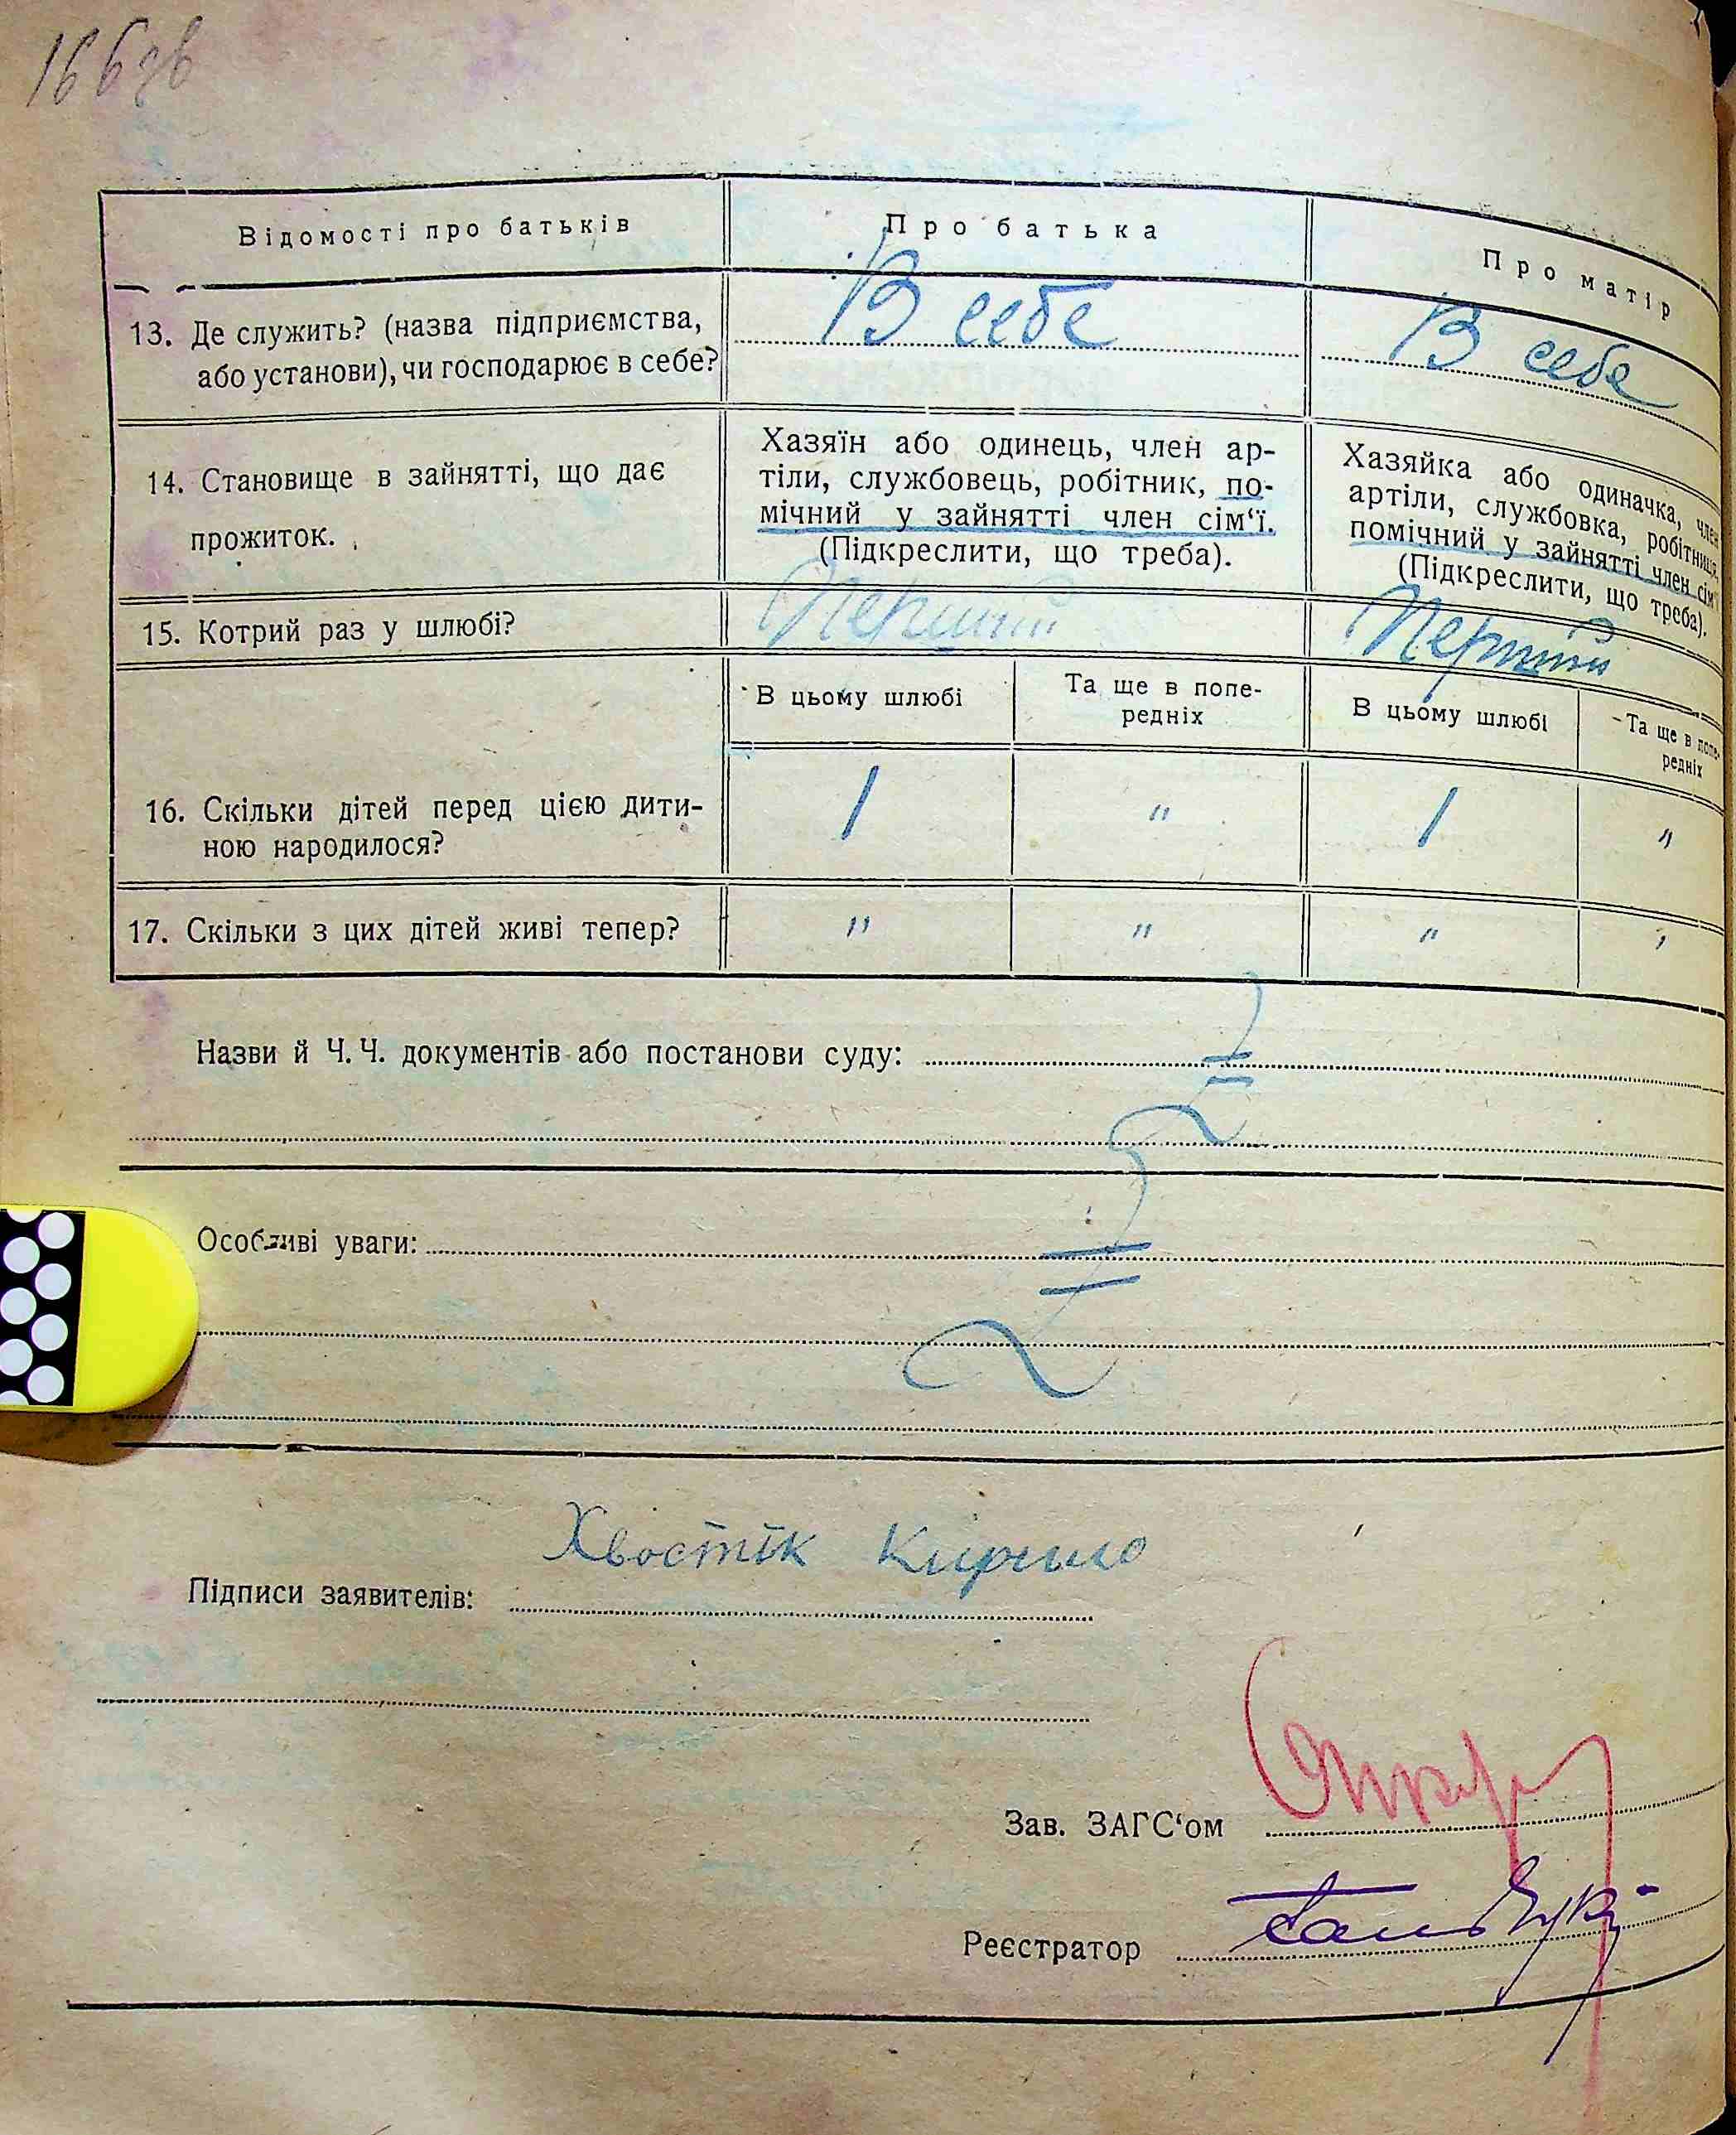 166зв
Відомості про батьків
Про батька
Про матір
13. Де служить? (назва підприємства,
або установи), чи господарює в себе?
В себе
В себе
14. Становище в зайнятті, що дає
прожиток.
Хазяїн або одинець, член ар-
тіли, службовець, робітник, по-
мічний у зайнятті член сім‘ї.
(Підкреслити, що треба).
Хазяйка або одиначка, член
артіли, службовка, робітниця,
помічний у зайнятті член сім‘ї
(Підкреслити, що треба).
15. Котрий раз у шлюбі?
Перший
Перший
В цьому шлюбі
Та ще в попе-
редніх
В цьому шлюбі
Та ще в попе-
редніх
16. Скільки дітей перед цією дити-
ною народилося?
1
"
1
"
17. Скільки з цих дітей живі тепер?
"
"
"
"
Назви й Ч. Ч. документів або постанови суду:
Особливі уваги:
Хвостік Кирило
Підписи заявителів:
Зав. ЗАГС‘ом
Реєстратор